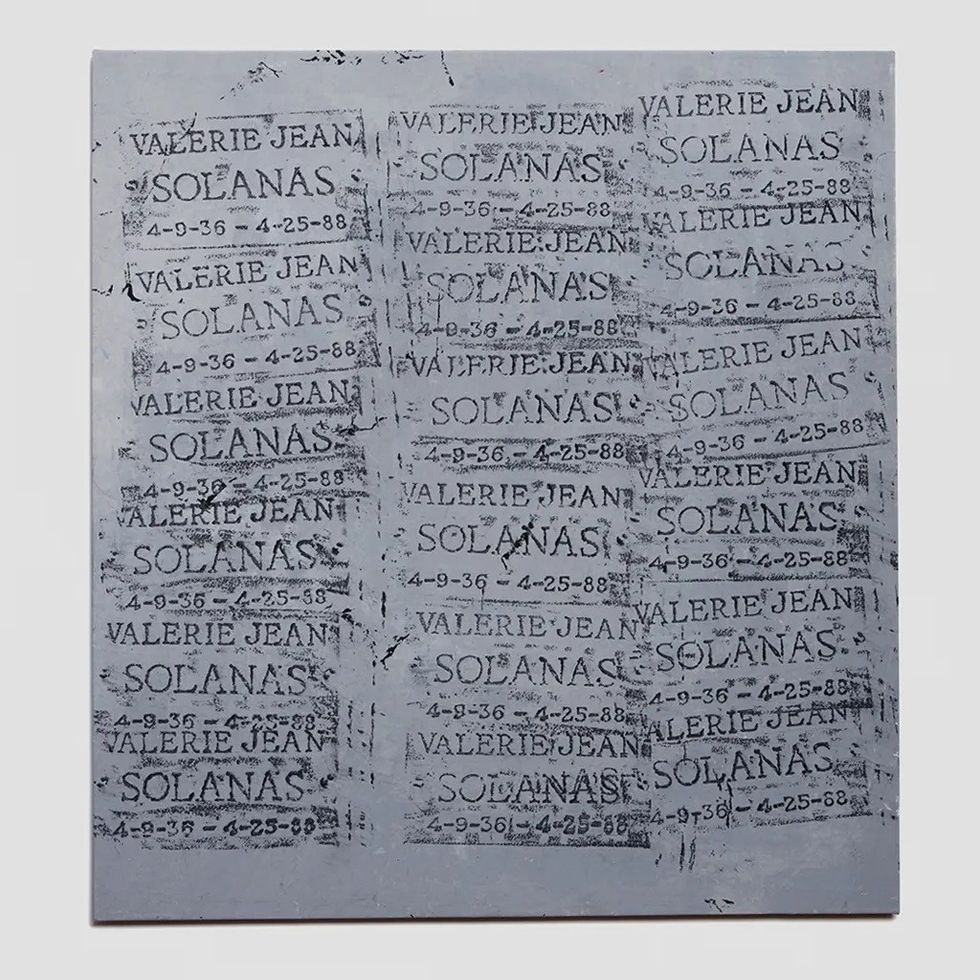 VALERIE JEAN
SOLANAS
4-9-36 - 4-25-88
VALERIE JEAN
SOLANAS
4-9-36 - 4-25-88
VALERIE JEAN
SOLANAS
4-9-36 - 4-25-88
VALERIE JEAN
SOLANAS
4-9-36 - 4-25-88
VALERIE JEAN
SOLANAS
4-9-36 - 4-25-88
VALERIE JEAN
SOLANAS
4-9-36 - 4-25-88
VALERIE JEAN
SOLANAS
4-9-36 - 4-25-88
VALERIE JEAN
SOLANAS
4-9-36 - 4-25-88
VALERIE JEAN
SOLANAS
4-9-36 - 4-25-88
VALERIE JEAN
SOLANAS
4-9-36 - 4-25-88
VALERIE JEAN
SOLANAS
4-9-36 - 4-25-88
VALERIE JEAN
SOLANAS
4-9-36 - 4-25-88
VALERIE JEAN
SOLANAS
4-9-36 - 4-25-88
VALERIE JEAN
SOLANAS
4-9-36 - 4-25-88
VALERIE JEAN
SOLANAS
4-9-36 - 4-25-88
VALERIE JEAN
SOLANAS
4-9-36 - 4-25-88
VALERIE JEAN
SOLANAS
4-9-36 - 4-25-88
VALERIE JEAN
SOLANAS
4-9-36 - 4-25-88